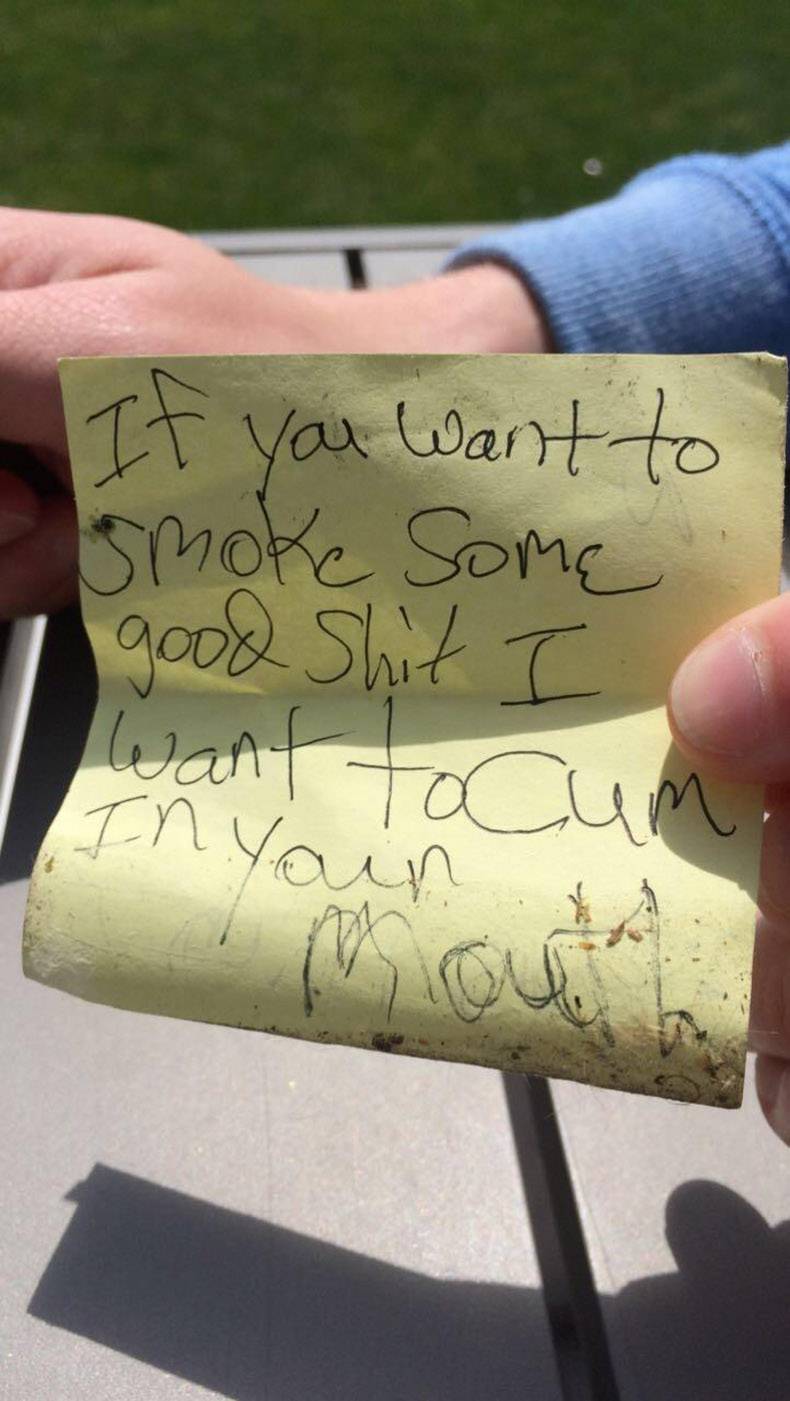 If you want to
smoke some
good shit I
want to cum
In your
Mouth